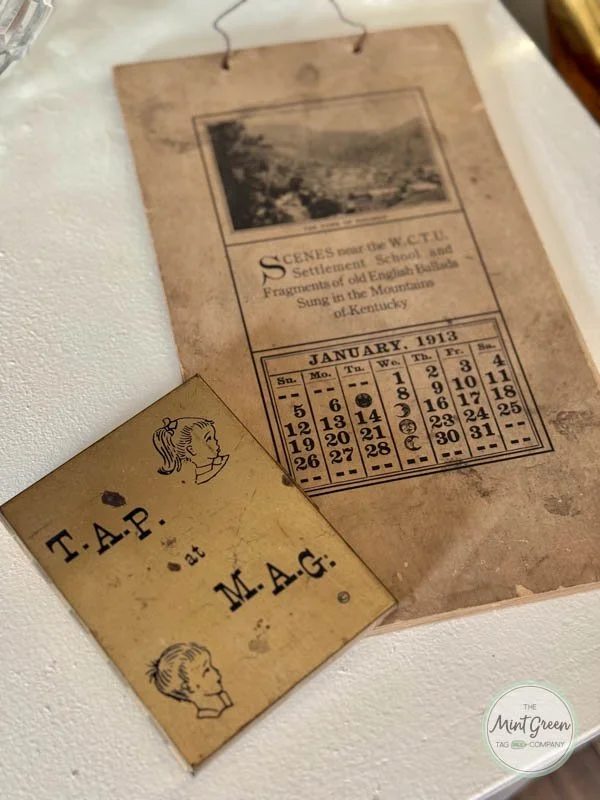 SCENES near the W.C.T.U.
Settlement School and
Fragments of old English Ballads
Sung in the Mountains
of Kentucky
JANUARY, 1913
Su. Mo. Tu. We. Th. Fr. Sa.
1 2 3 4
5 6 8 9 10 11
12 13 14 16 17 18
19 20 21 23 24 25
26 27 28 30 31
T.A.P.
at
M.A.G.
THE
Mint Green
TAG COMPANY